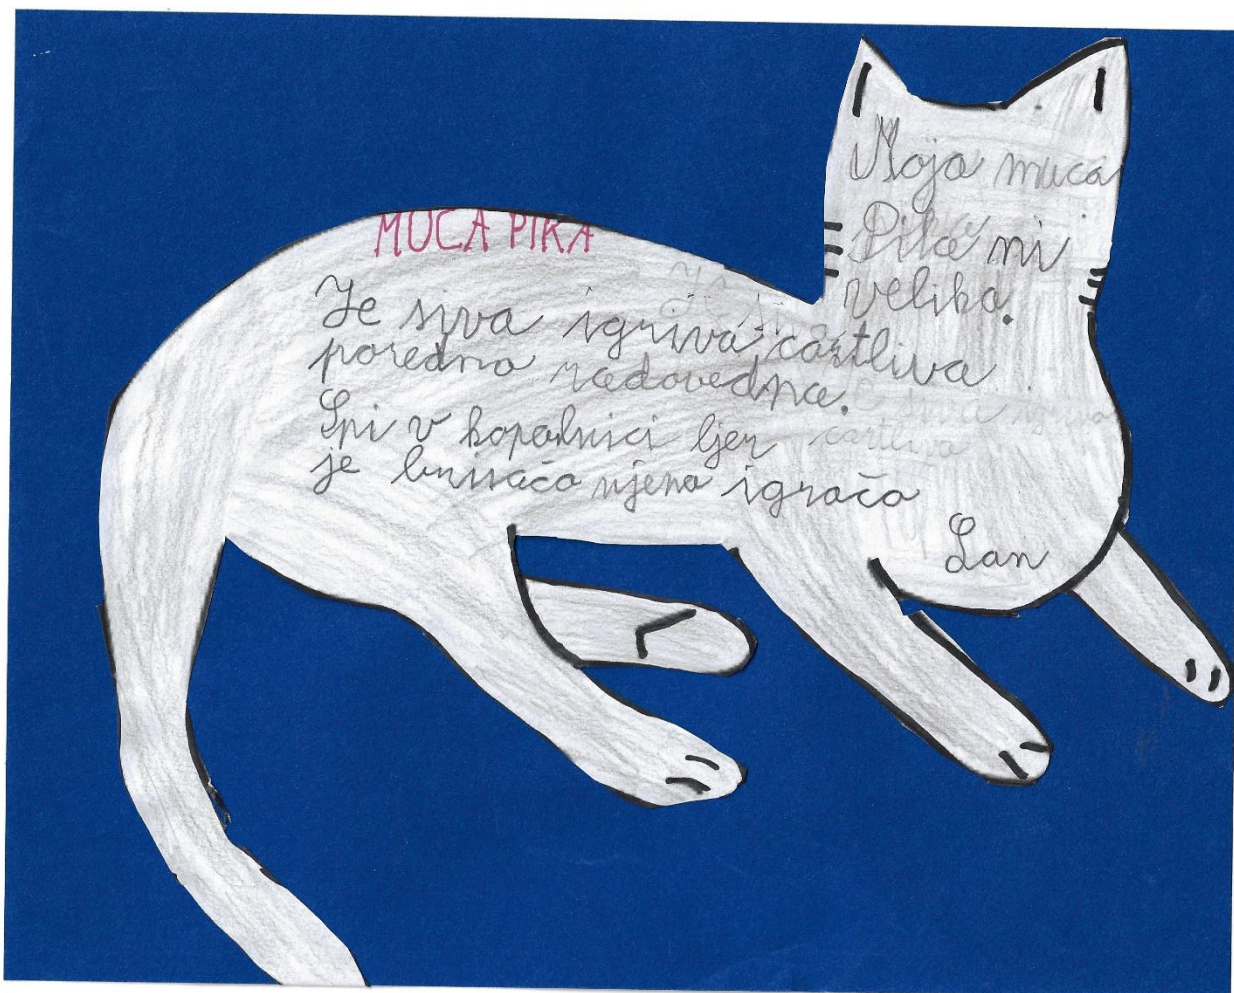 MUCA PIKA
Moja muca
Pika ni
velika.
Je siva igriva cartliva
poredna radovedna.
Spi v kopalnici kjer
je brisača njena igrača
Lan